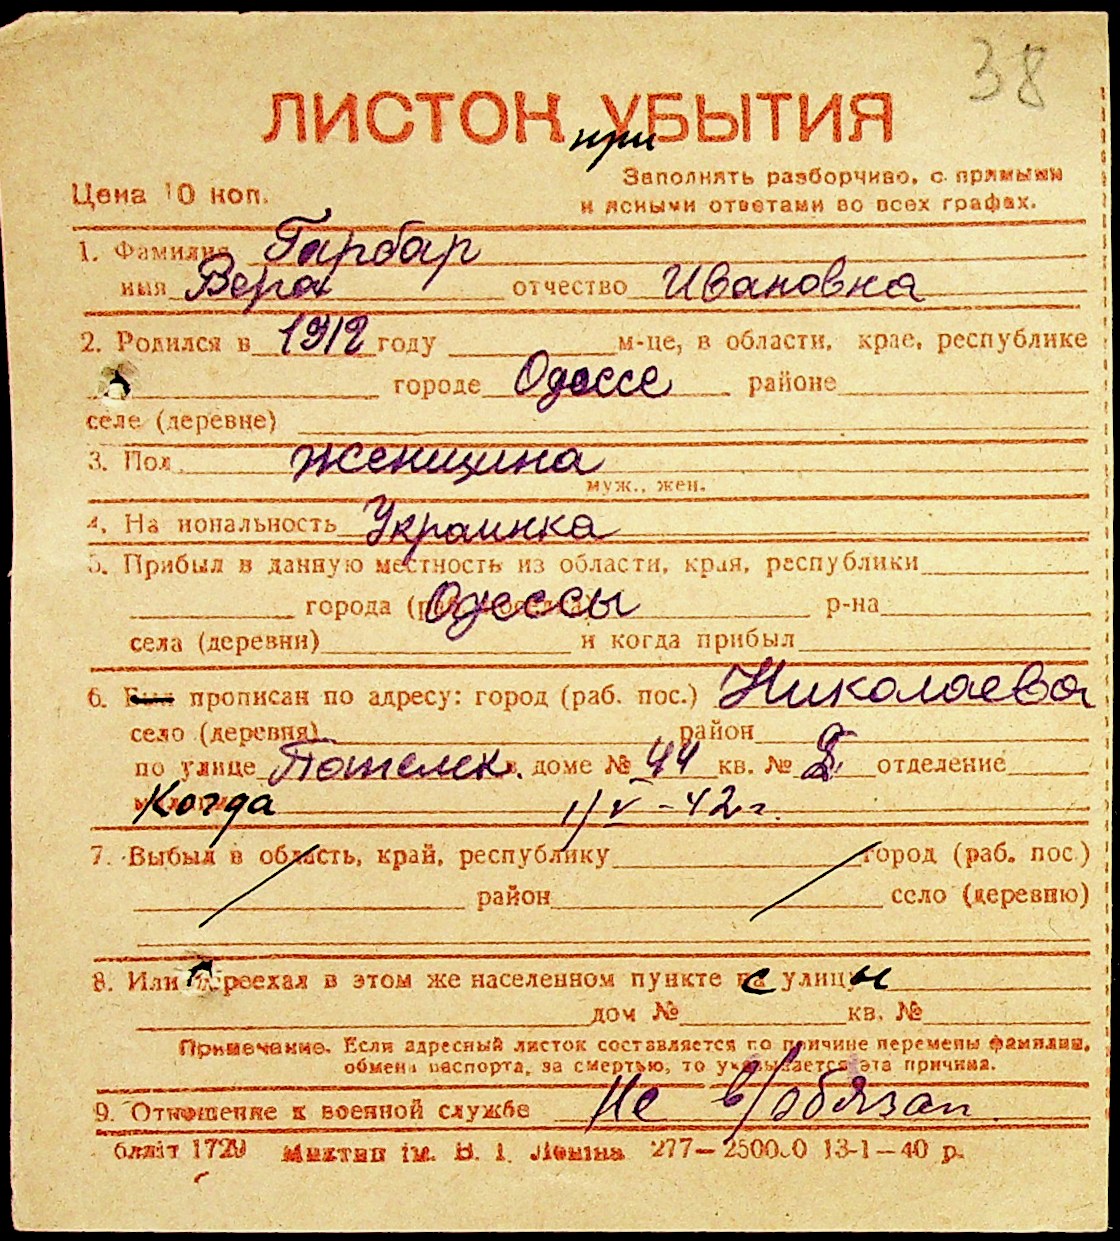 38
ЛИСТОК УБЫТИЯ
при
Цена 10 коп.
Заполнять разборчиво, с прямыми
и ясными ответами во всех графах.
1. Фамилия Гарбар
имя Вера отчество Ивановна
2. Родился в 1912 году м-це, в области, крае, республике
городе Одессе районе
селе (деревне)
3. Пол женщина
муж., жен.
4. На иональность Украинка
5. Прибыл в данную местность из области, края, республики
города Одессы р-на
села (деревни) и когда прибыл
6. Был прописан по адресу: город (раб. пос.) Николаева
село (деревня) район
по улице доме № 44 кв. № 2 отделение
Когда 1/V-42 г.
7. Выбыл в область, край, республику город (раб. пос.)
район село (деревню)
8. Или переехал в этом же населенном пункте с улицы
дом № кв. №
Примечание. Если адресный листок составляется по причине перемены фамилии,
обмена паспорта, за смертью, то указывается эта причина.
9. Отношение к военной службе Не в/обязан.
бланк 1729 Миктип ім. В. І. Леніна 277—250000 13-1—40 р.